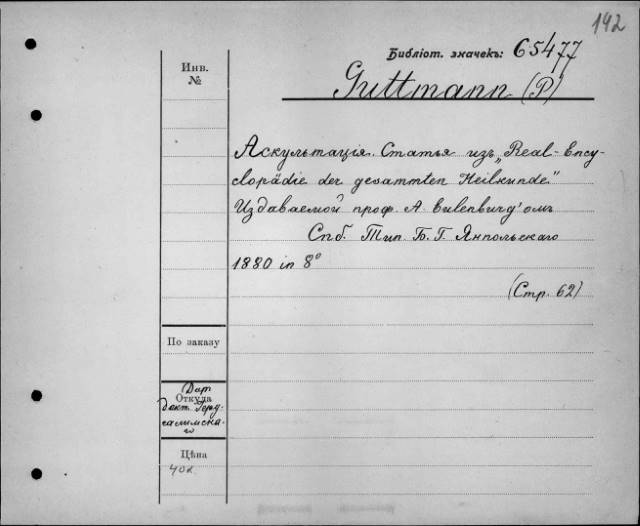 142
Библіот. значекъ: 65477
Инв.
№
Guttmann (P)
Аскультація. Статья изъ „Real-Ency-
clopädie der gesammten Heilkunde."
Издаваемой проф. A. Eulenburg'омъ
Спб. Тип. Б. Г. Янпольскаго
1880 in 8°
(Стр. 62)
По заказу
Откуда
Дар
докт. Геру-
салимска-
го
Цѣна
40к